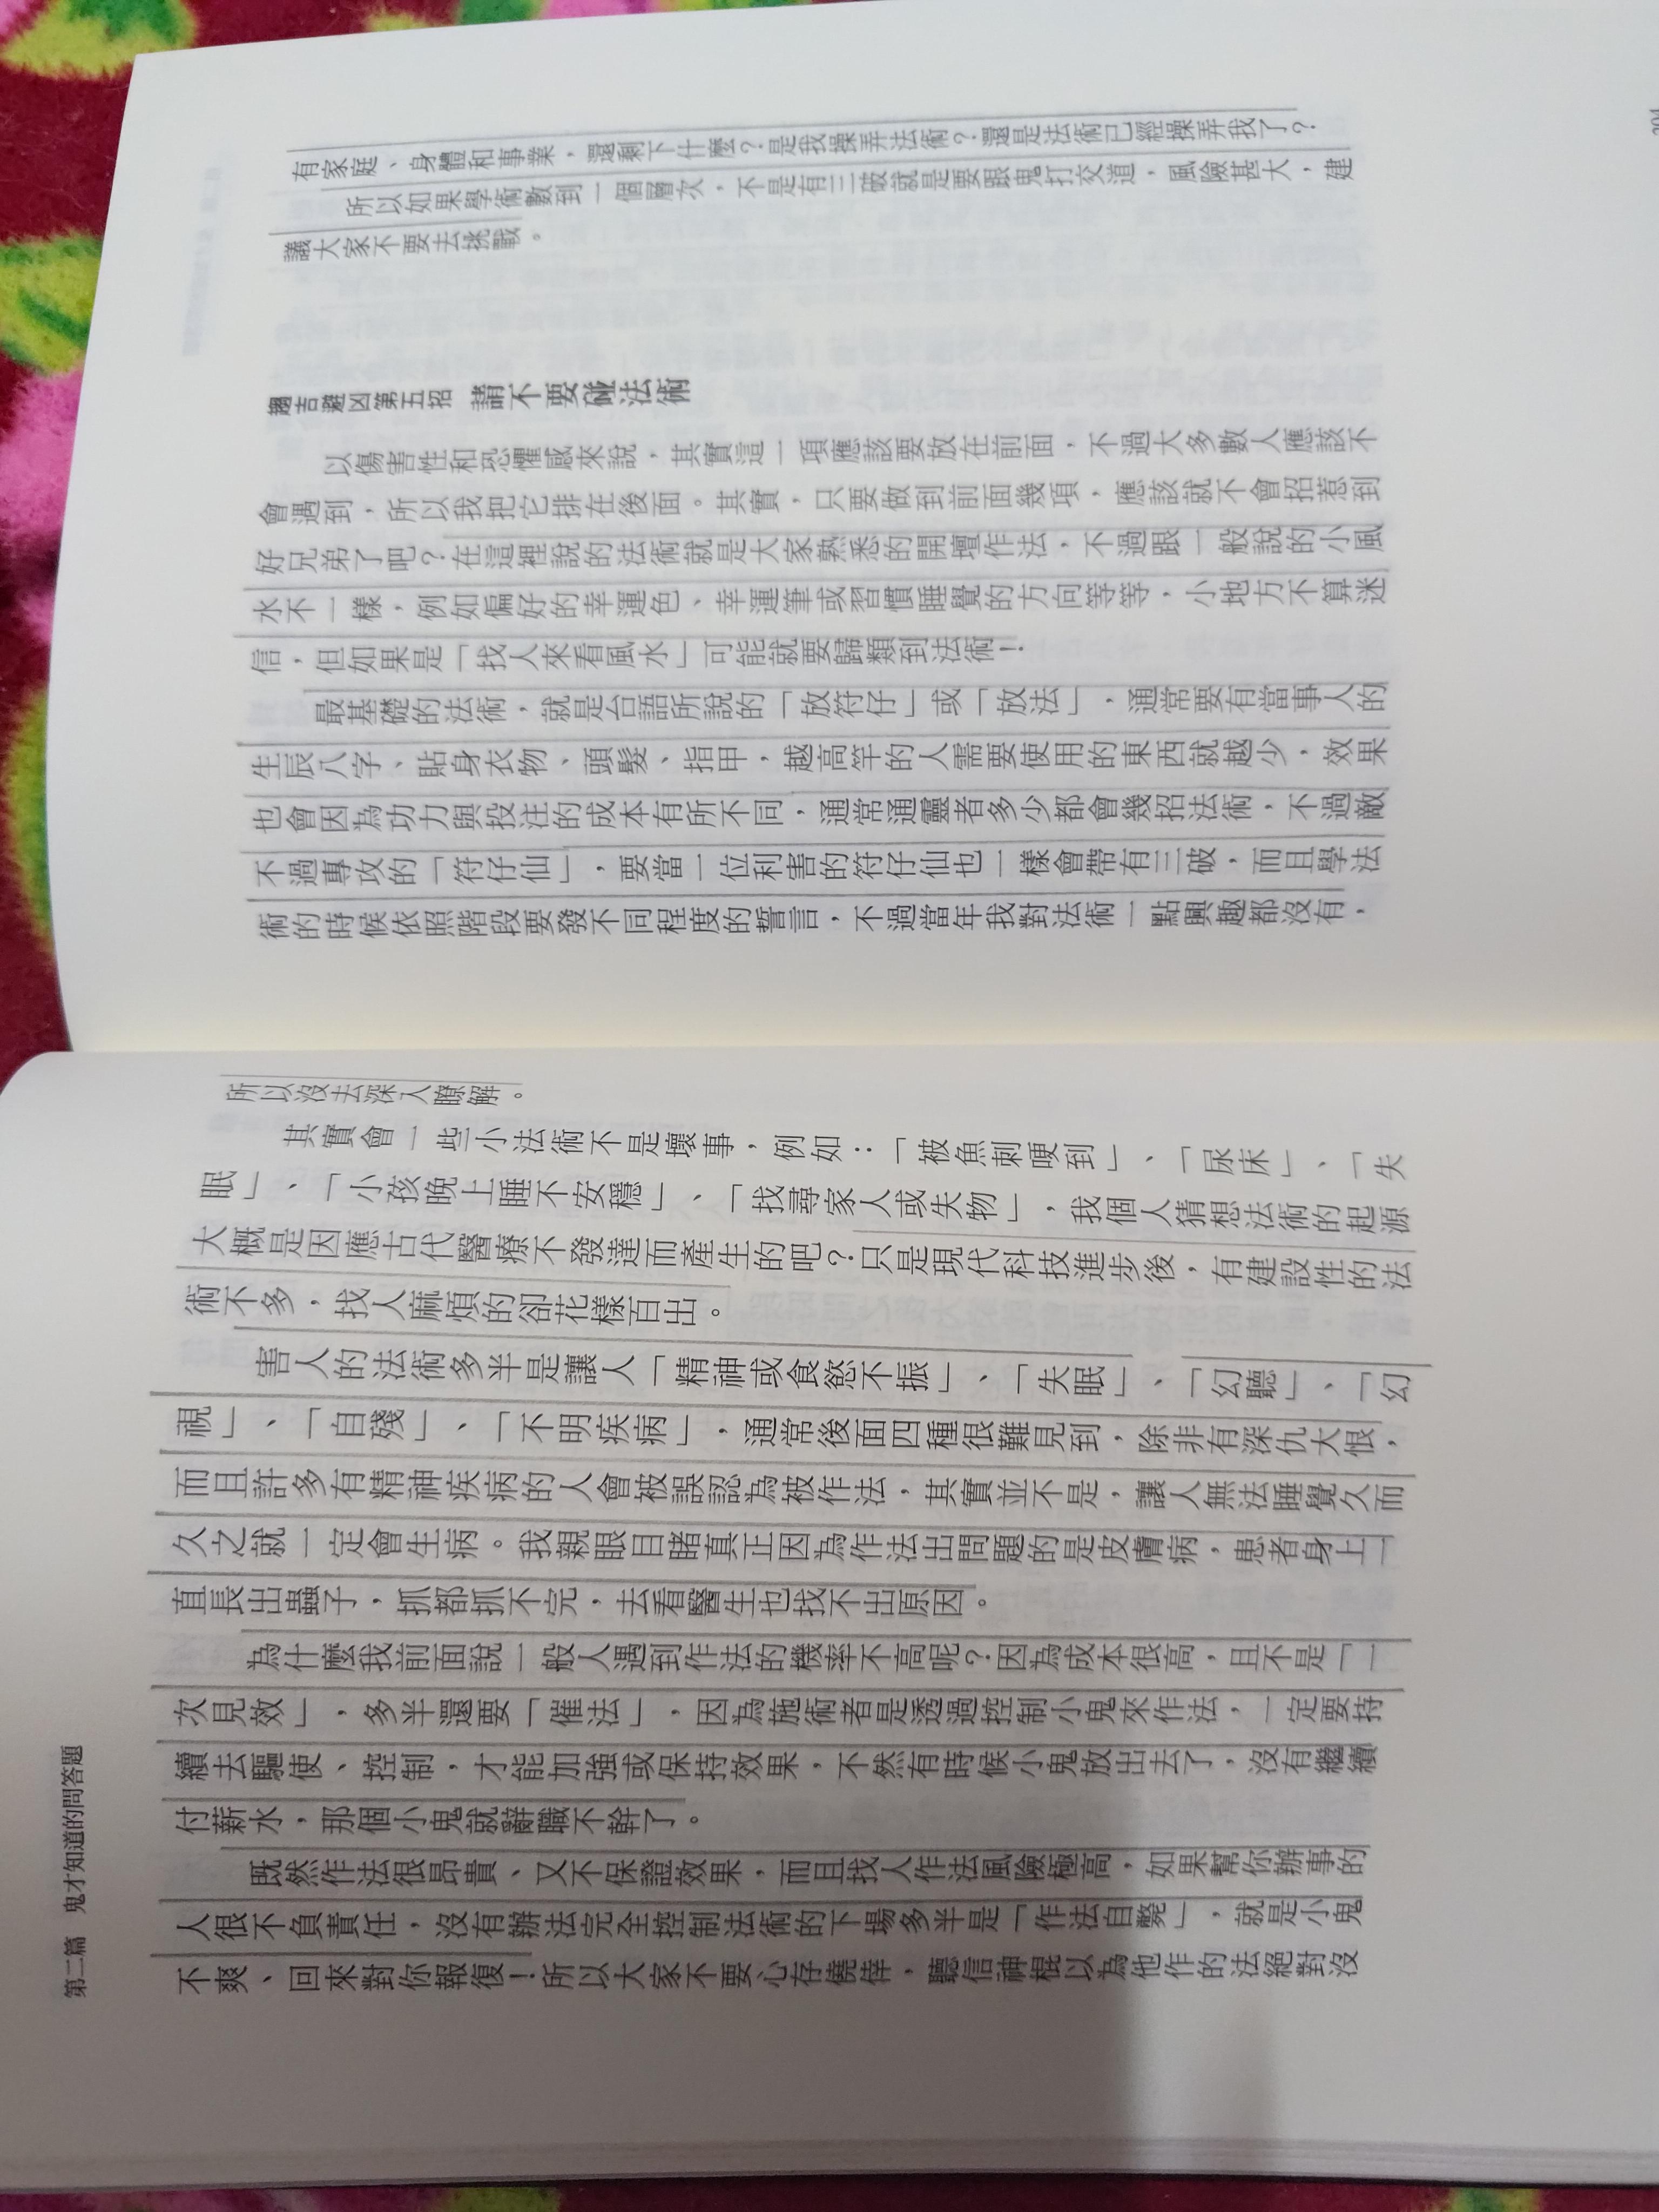 有家庭、身體和事業，還剩下什麼？是我操弄法術？還是法術已經操弄我了？
所以如果學術數到一個層次，不是有三破就是要跟鬼打交道，風險甚大，建
議大家不要去挑戰。
趨吉避凶第五招 請不要碰法術
以傷害性和恐懼感來說，其實這一項應該要放在前面，不過大多數人應該不
會遇到，所以我把它排在後面。其實，只要做到前面幾項，應該就不會招惹到
好兄弟了吧？在這裡說的法術就是大家熟悉的開壇作法，不過跟一般說的小風
水不一樣，例如偏好的幸運色、幸運筆或習慣睡覺的方向等等，小地方不算迷
信，但如果是「找人來看風水」可能就要歸類到法術！
最基礎的法術，就是台語所說的「放符仔」或「放法」，通常要有當事人的
生辰八字、貼身衣物、頭髮、指甲，越高竿的人需要使用的東西就越少，效果
也會因為功力與投注的成本有所不同，通常通靈者多少都會幾招法術，不過敵
不過專攻的「符仔仙」，要當一位利害的符仔仙也一樣會帶有三破，而且學法
術的時候依照階段要發不同程度的誓言，不過當年我對法術一點興趣都沒有，
所以沒去深入瞭解。
其實會一些小法術不是壞事，例如：「被魚刺哽到」、「尿床」、「失
眠」、「小孩晚上睡不安穩」、「找尋家人或失物」，我個人猜想法術的起源
大概是因應古代醫療不發達而產生的吧？只是現代科技進步後，有建設性的法
術不多，找人麻煩的卻花樣百出。
害人的法術多半是讓人「精神或食慾不振」、「失眠」、「幻聽」、「幻
視」、「自殘」、「不明疾病」，通常後面四種很難見到，除非有深仇大恨，
而且許多有精神疾病的人會被誤認為被作法，其實並不是，讓人無法睡覺久而
久之就一定會生病。我親眼目睹真正因為作法出問題的是皮膚病，患者身上一
直長出蟲子，抓都抓不完，去看醫生也找不出原因。
為什麼我前面說一般人遇到作法的機率不高呢？因為成本很高，且不是「一
次見效」，多半還要「催法」，因為施術者是透過控制小鬼來作法，一定要持
續去驅使、控制，才能加強或保持效果，不然有時候小鬼放出去了，沒有繼續
付薪水，那個小鬼就辭職不幹了。
既然作法很昂貴、又不保證效果，而且找人作法風險極高，如果幫你辦事的
人很不負責任，沒有辦法完全控制法術的下場多半是「作法自斃」，就是小鬼
不爽、回來對你報復！所以大家不要心存僥倖，聽信神棍以為他作的法絕對沒
第二篇 鬼才知道的問答題